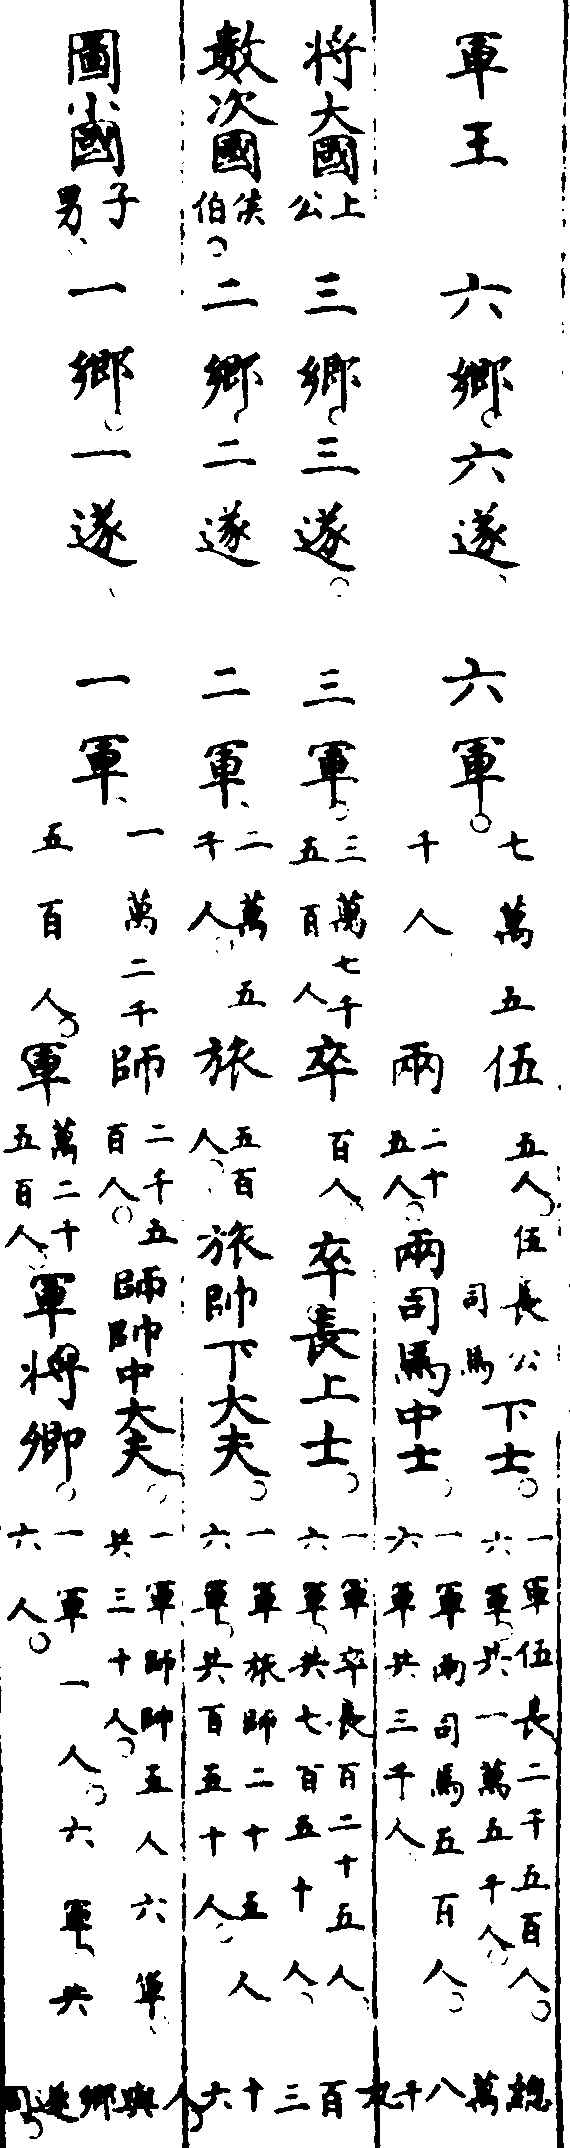 軍將數圖
王
大國上公
次國侯伯
小國子男
六鄉六遂
三鄉三遂
二鄉二遂
一鄉一遂
六軍七萬五千人
三軍三萬七千五百人
二軍二萬五千人
一軍一萬二千五百人
伍五人伍長公司馬下士
兩二十五人兩司馬中士
卒百人卒長上士
旅五百人旅帥下大夫
師二千五百人師帥中大夫
軍萬二千五百人軍將卿
一軍伍長二千五百人六軍共一萬五千人
一軍兩司馬五百人六軍共三千人
一軍卒長百二十五人六軍共七百五十人
一軍旅師二十五人六軍共百五十人
一軍師帥五人六軍共三十人
一軍一人六軍共六人
總萬八千九百三十六人與鄉遂同